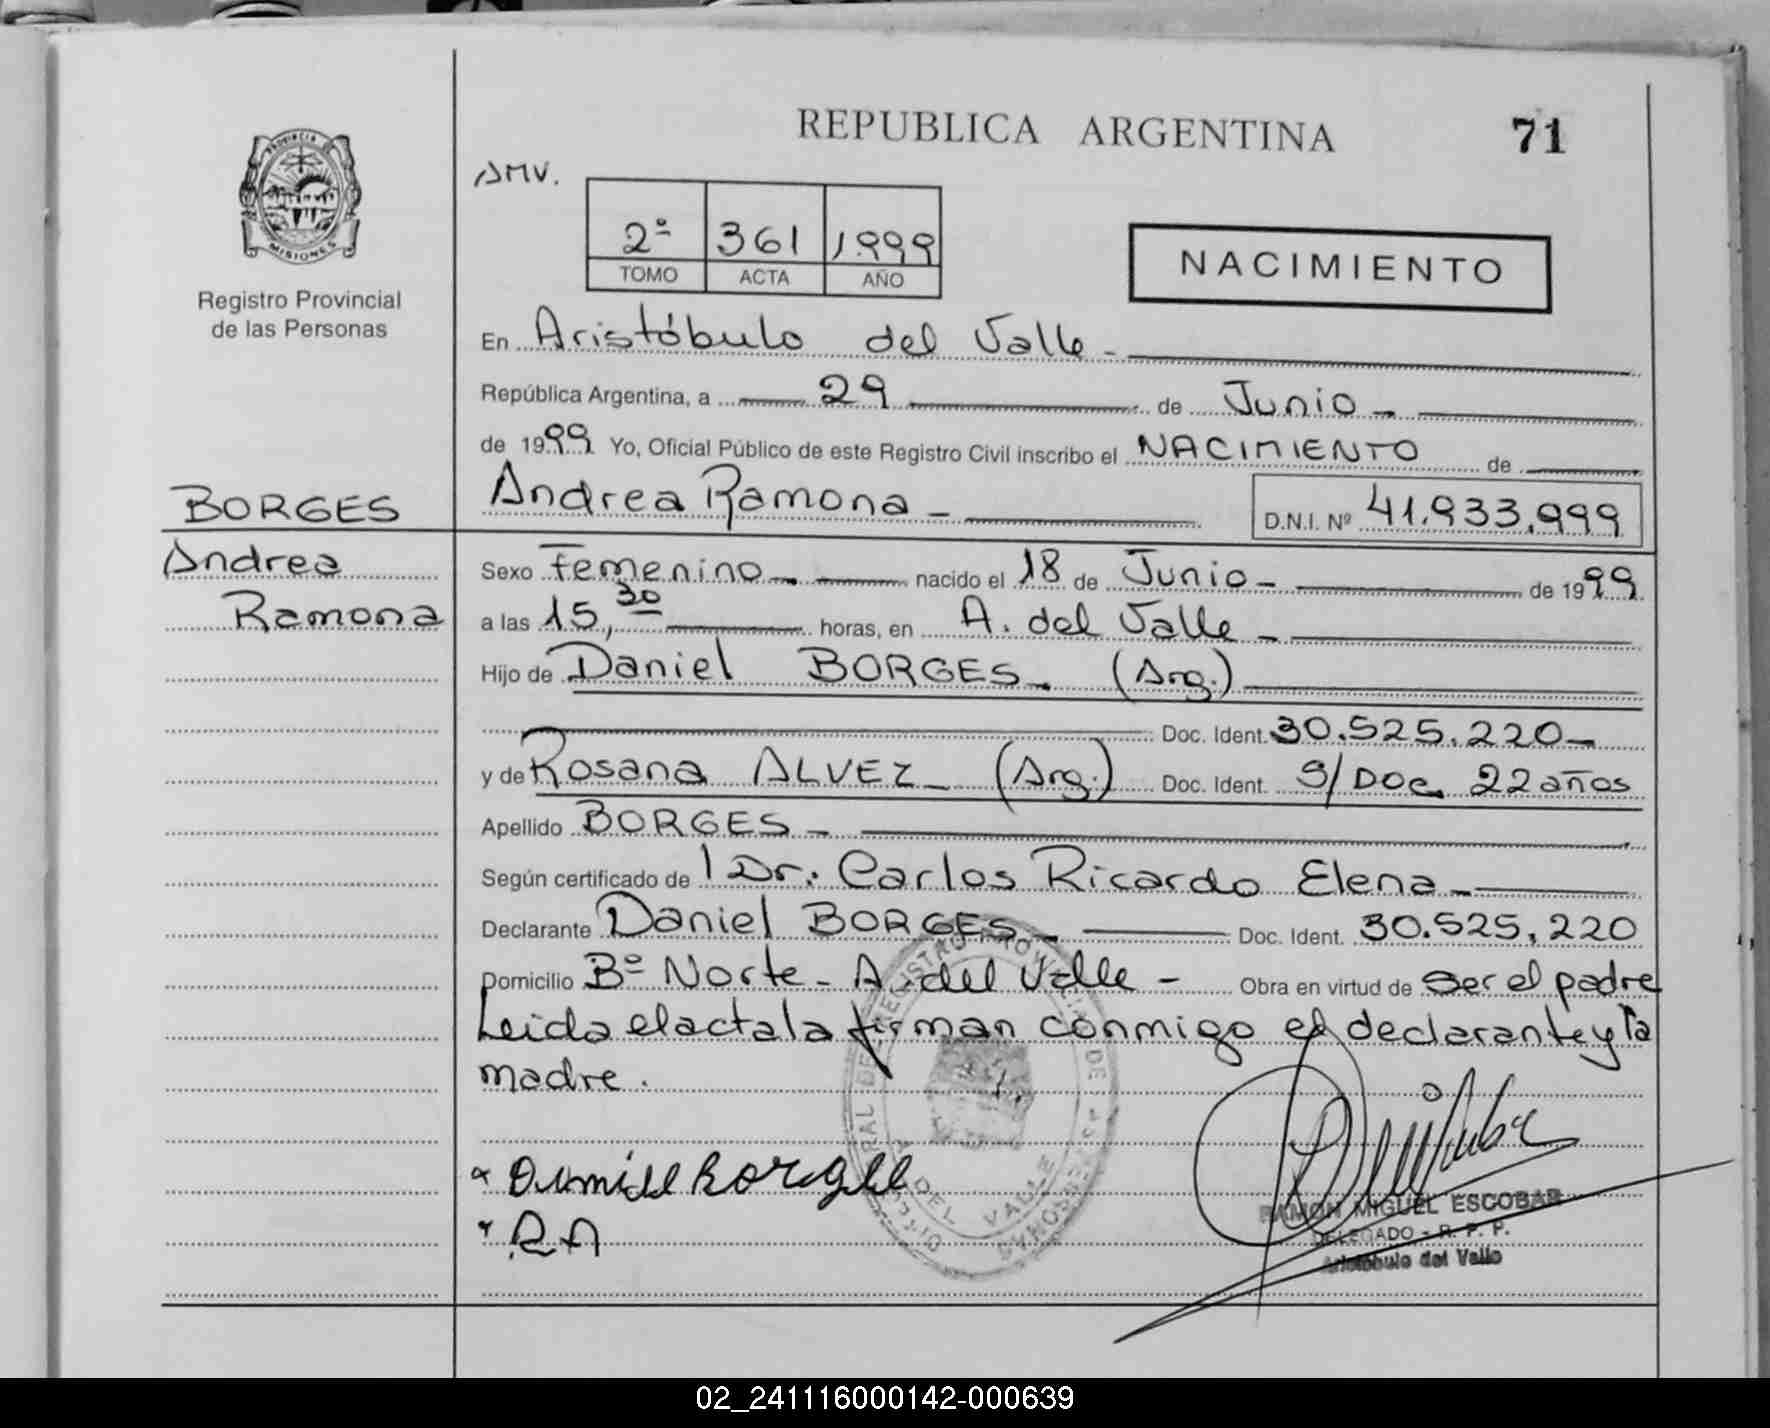 REPUBLICA ARGENTINA
71
PROVINCIA DE
MISIONES
Registro Provincial
de las Personas
AMV.
2º 361 1.999
TOMO ACTA AÑO
NACIMIENTO
En Aristóbulo del Valle -
República Argentina, a 29 de Junio -
de 1999 Yo, Oficial Público de este Registro Civil inscribo el NACIMIENTO de
BORGES
Andrea Ramona -
D.N.I. Nº 41.933.999
Andrea
Ramona
Sexo Femenino - nacido el 18 de Junio - de 1999
a las 15,30 horas, en A. del Valle -
Hijo de Daniel BORGES - (Arg.)
Doc. Ident. 30.525.220 -
y de Rosana ALVEZ - (Arg.) Doc. Ident. S/Doc. 22 años
Apellido BORGES -
Según certificado de l Dr. Carlos Ricardo Elena -
Declarante Daniel BORGES - Doc. Ident. 30.525,220
Domicilio Bº Norte - A. del Valle - Obra en virtud de Ser el padre
Leida el acta la firman conmigo el declarante y la
madre.
RA
RAMON MIGUEL ESCOBAR
DELEGADO - R. P. P.
Aristóbulo del Valle
02_241116000142-000639